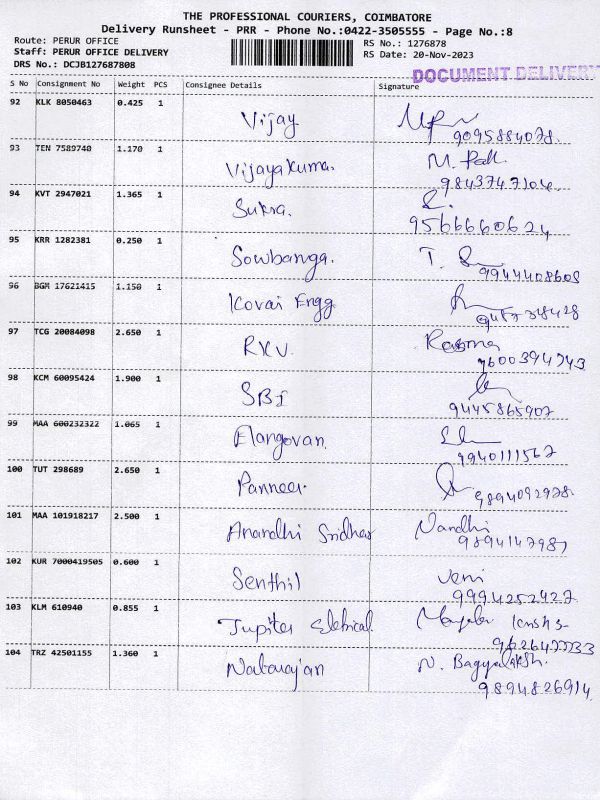 THE PROFESSIONAL COURIERS, COIMBATORE
Delivery Runsheet - PRR - Phone No.:0422-3505555 - Page No.:8
Route: PERUR OFFICE RS No.: 1276878
Staff: PERUR OFFICE DELIVERY RS Date: 20-Nov-2023
DRS No.: DCJB127687808
DOCUMENT DELIVERY
S No Consignment No Weight PCS Consignee Details Signature
92 KLK 8050463 0.425 1
Vijay
9095884078.
93 TEN 7589740 1.170 1
Vijayakumar. M.
9843747104
94 KVT 2947021 1.365 1
Sukra.
9566660624
95 KRR 1282381 0.250 1
Sowbanga. T.
9944408608
96 BGM 17621415 1.150 1
Kovai Engg
97 TCG 20084098 2.650 1
RKV.
7600394743
98 KCM 60095424 1.900 1
SBI
9445865907
99 MAA 600232322 1.065 1
Elangovan
9940111567
100 TUT 298689 2.650 1
Panneer.
9894092978.
101 MAA 101918217 2.500 1
Anandhi Sridhar Nandhi
9894147987
102 KUR 7000419505 0.600 1
Senthil Veni
9994252427
103 KLM 610940 0.855 1
Jupiter Eletrical
104 TRZ 42501155 1.360 1
Natarajan N.
9894826914